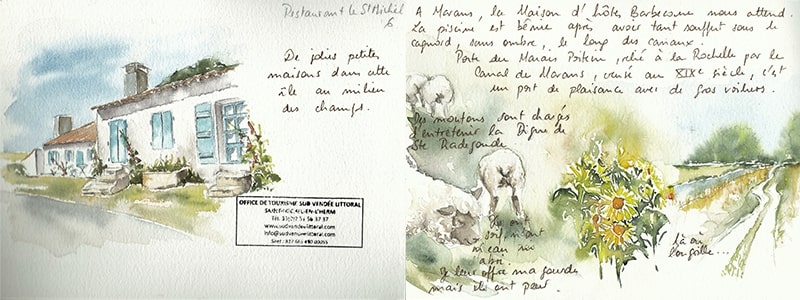 Restaurant le St Michel
6
De jolies petites
maisons dans cette
île au milieu
des champs.
OFFICE DE TOURISME SUD VENDÉE LITTORAL
SAINT-MICHEL-EN-L'HERM
www.sudvendeelittoral.com
info@sudvendeelittoral.com
A Marans, la Maison d'hôtes Barbecane nous attend.
La piscine est bénie après avoir tant souffert sous le
cagnard, sans ombre, le long des canaux.
Porte du Marais Poitevin, relié à la Rochelle par le
Canal de Marans, creusé au XIXe siècle, c'est
un port de plaisance avec de gros voiliers.
Des moutons sont chargés
d'entretenir la Digue de
Ste Radegonde
Ils ont
soif, n'ont
ni eau ni
abri.
Je leur offre ma gourde
mais ils ont peur.
là où
l'on grille...